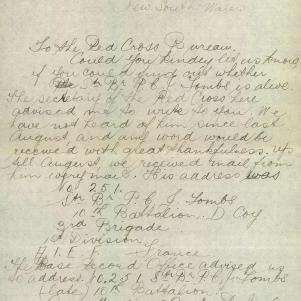 New South Wales
To the Red Cross Bureau.
Could you kindley let us know
if you could find out whether
the Str Br P. G. Tombs is alive
The secretary of the Red Cross here
advised me to write to you. We
have not heard of him since last
August and any word would be
received with great thankfulness. Up
till August we received mail from
him every mail. His address was
10 251.
Str Br P. G. J. Tombs
10th Battalion. D Coy
3rd Brigade
1st Division
A. I. E. F. France
The Base Record Office advised us
to address. 10.251 Str Br P. G. J. Tombs
(late) 10th Battalion